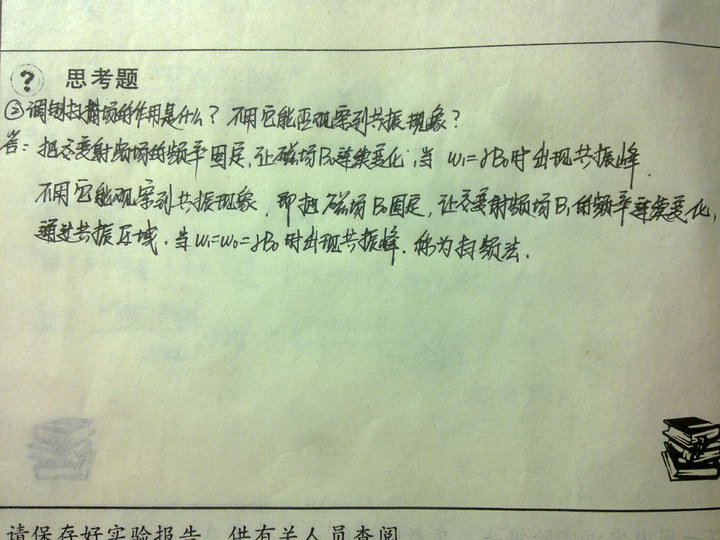 ? 思考题
②调制扫描场的作用是什么？不用它能否观察到共振现象？
答：把交变射频场的频率固定，让磁场B₀连续变化，当 ω₁=γB₀时出现共振峰．
不用它能观察到共振现象，即把磁场B₀固定，让交变射频场B₁的频率连续变化，
通过共振区域．当ω₁=ω₀=γB₀时出现共振峰．称为扫频法．
请保存好实验报告，供有关人员查阅